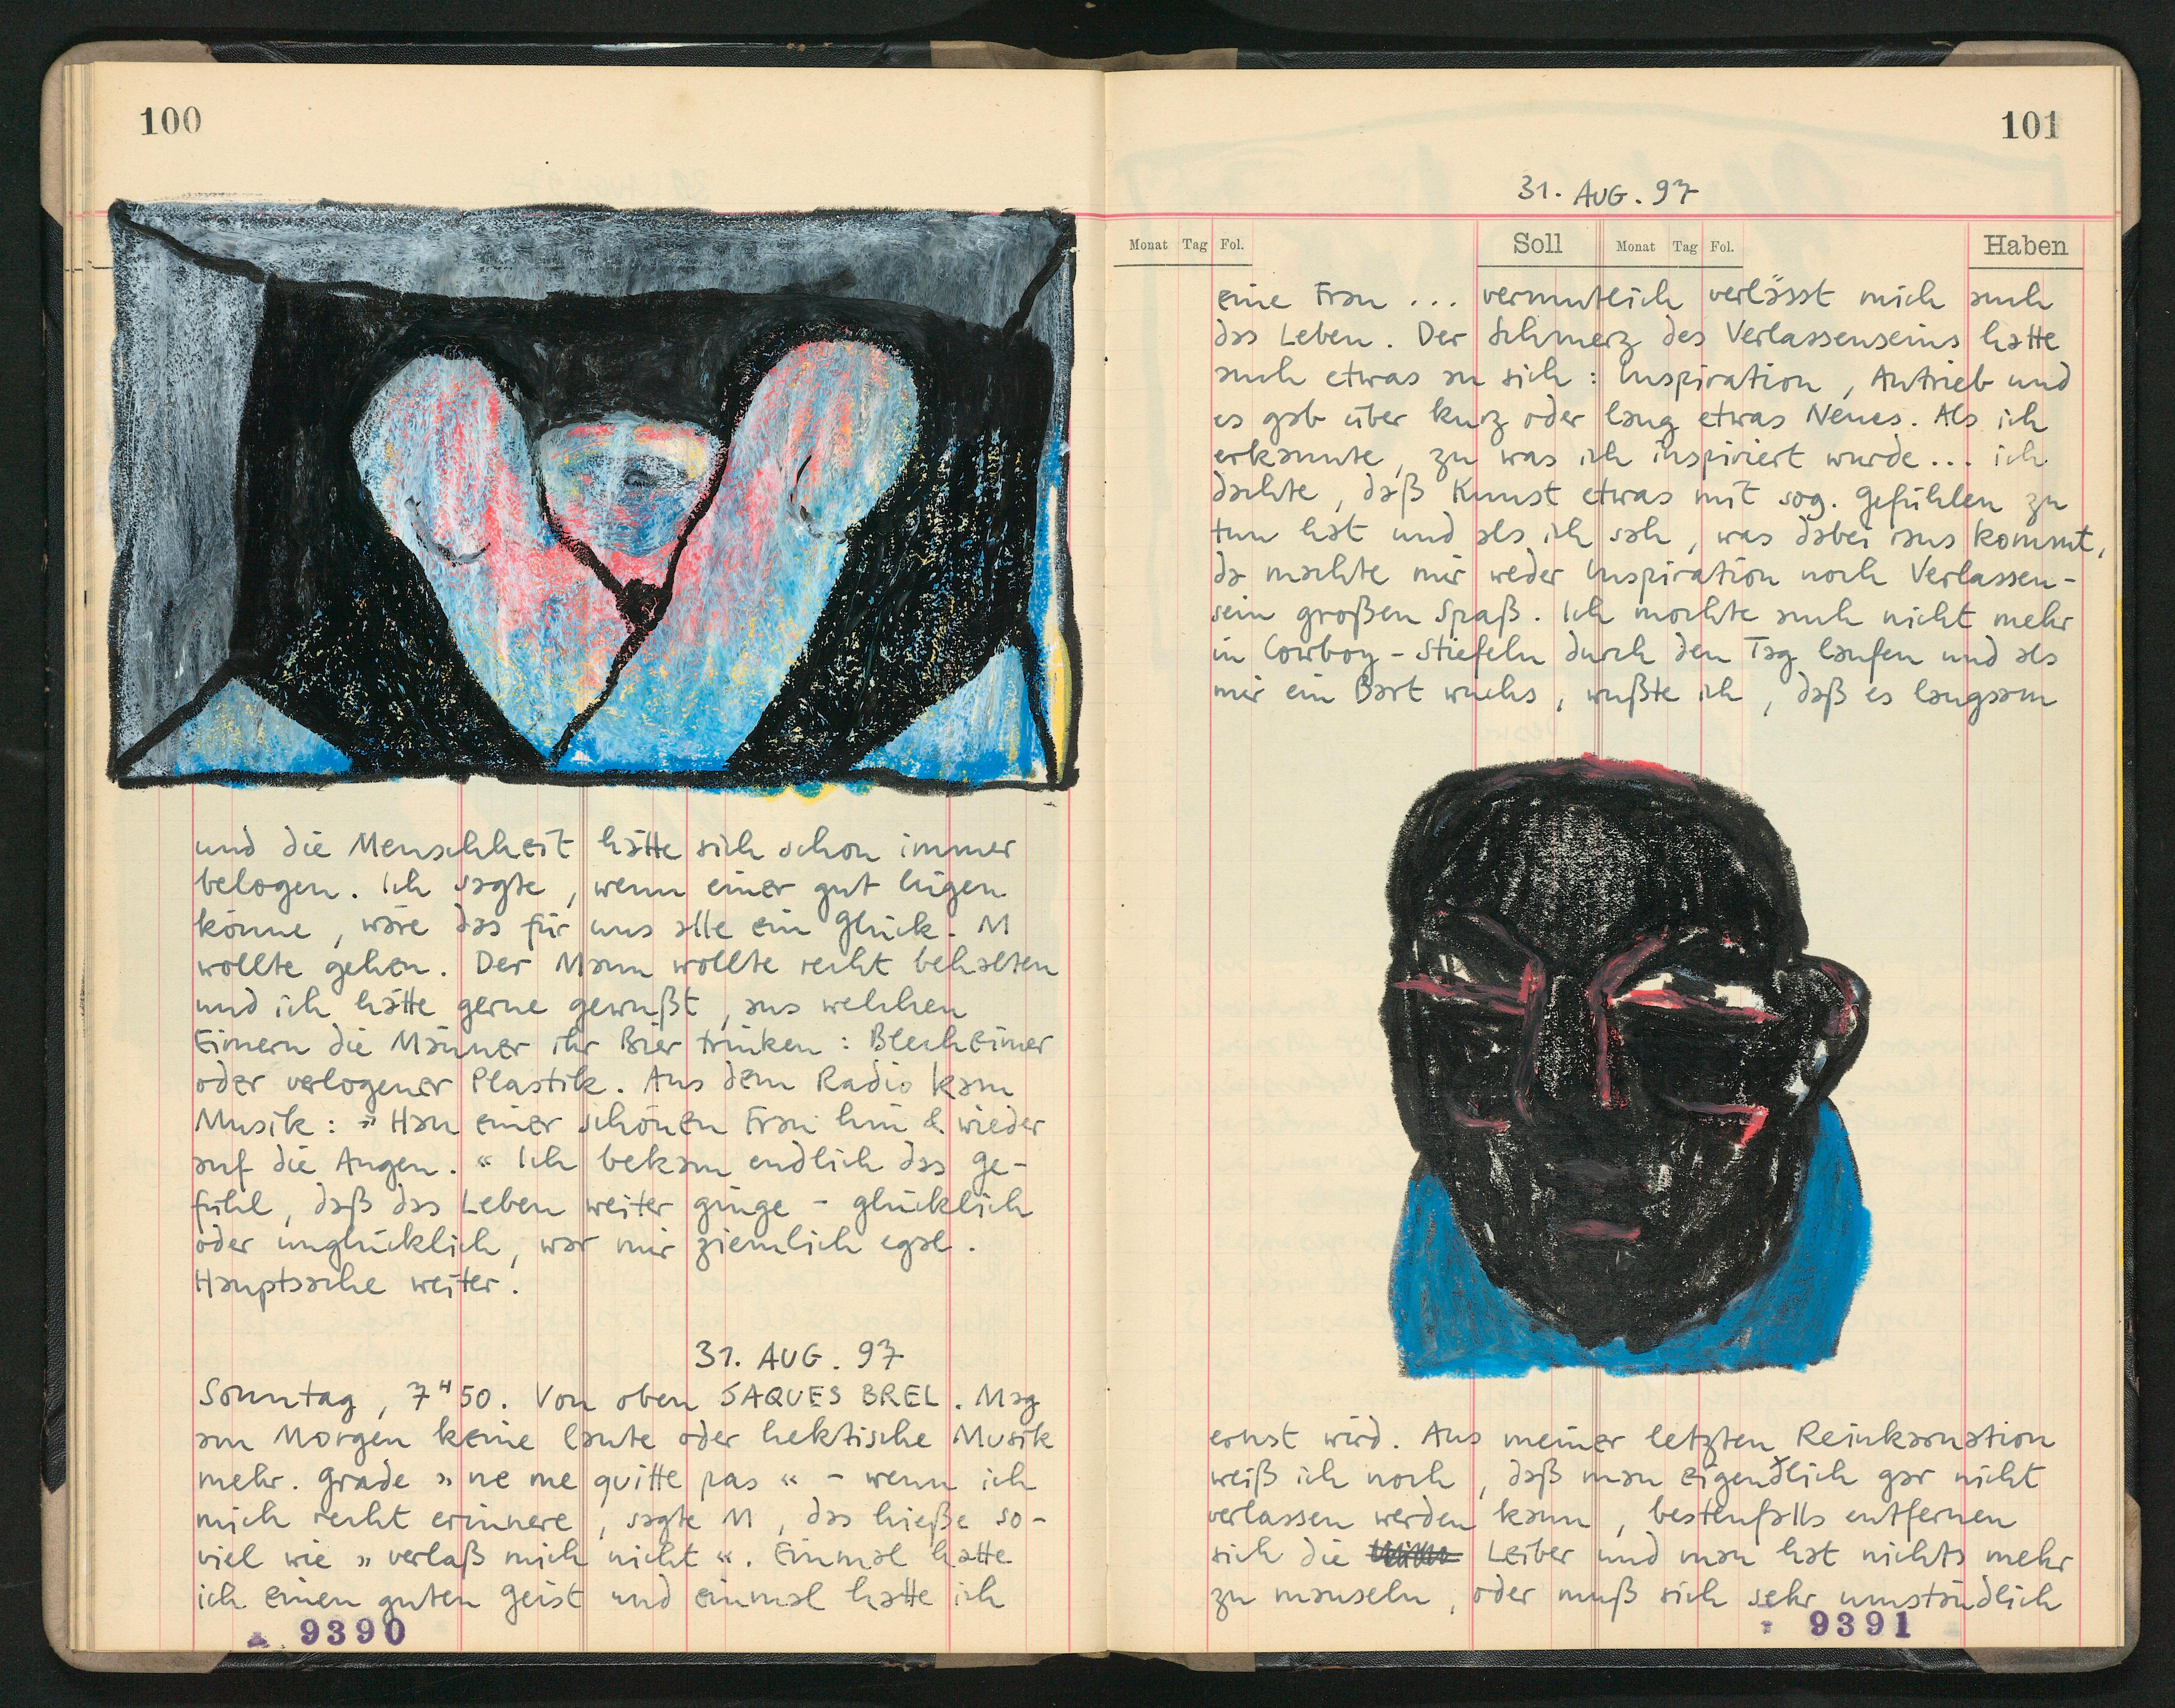 100
und die Menschheit hätte sich schon immer
belogen. Ich sagte, wenn einer gut lügen
könne, wäre das für uns alle ein Glück. M
wollte gehen. Der Mann wollte recht behalten
und ich hätte gerne gewußt, aus welchen
Eimern die Männer ihr Bier trinken: Blecheimer
oder verlogener Plastik. Aus dem Radio kam
Musik: »Hau einer schönen Frau hin & wieder
auf die Augen.« Ich bekam endlich das Ge-
fühl, daß das Leben weiter ginge - glücklich
oder unglücklich, war mir ziemlich egal.
Hauptsache weiter.
31. AUG. 97
Sonntag, 7H50. Von oben JAQUES BREL. Mag
am Morgen keine laute oder hektische Musik
mehr. Grade »ne me quitte pas« - wenn ich
mich recht erinnere, sagte M, das hieße so-
viel wie »verlaß mich nicht«. Einmal hatte
ich einen guten Geist und einmal hatte ich
9390
101
31. AUG. 97
Monat Tag Fol. Soll Monat Tag Fol. Haben
eine Frau ... vermutlich verlässt mich auch
das Leben. Der Schmerz des Verlassenseins hatte
auch etwas an sich: Inspiration, Antrieb und
es gab über kurz oder lang etwas Neues. Als ich
erkannte, zu was ich inspiriert wurde... ich
dachte, daß Kunst etwas mit sog. Gefühlen zu
tun hat und als ich sah, was dabei raus kommt,
da machte mir weder Inspiration noch Verlassen-
sein großen Spaß. Ich mochte auch nicht mehr
in Cowboy-Stiefeln durch den Tag laufen und als
mir ein Bart wuchs, wußte ich, daß es langsam
ernst wird. Aus meiner letzten Reinkarnation
weiß ich noch, daß man eigendlich gar nicht
verlassen werden kann, bestenfalls entfernen
sich die Leiber und man hat nichts mehr
zu mauseln, oder muß sich sehr umständlich
9391